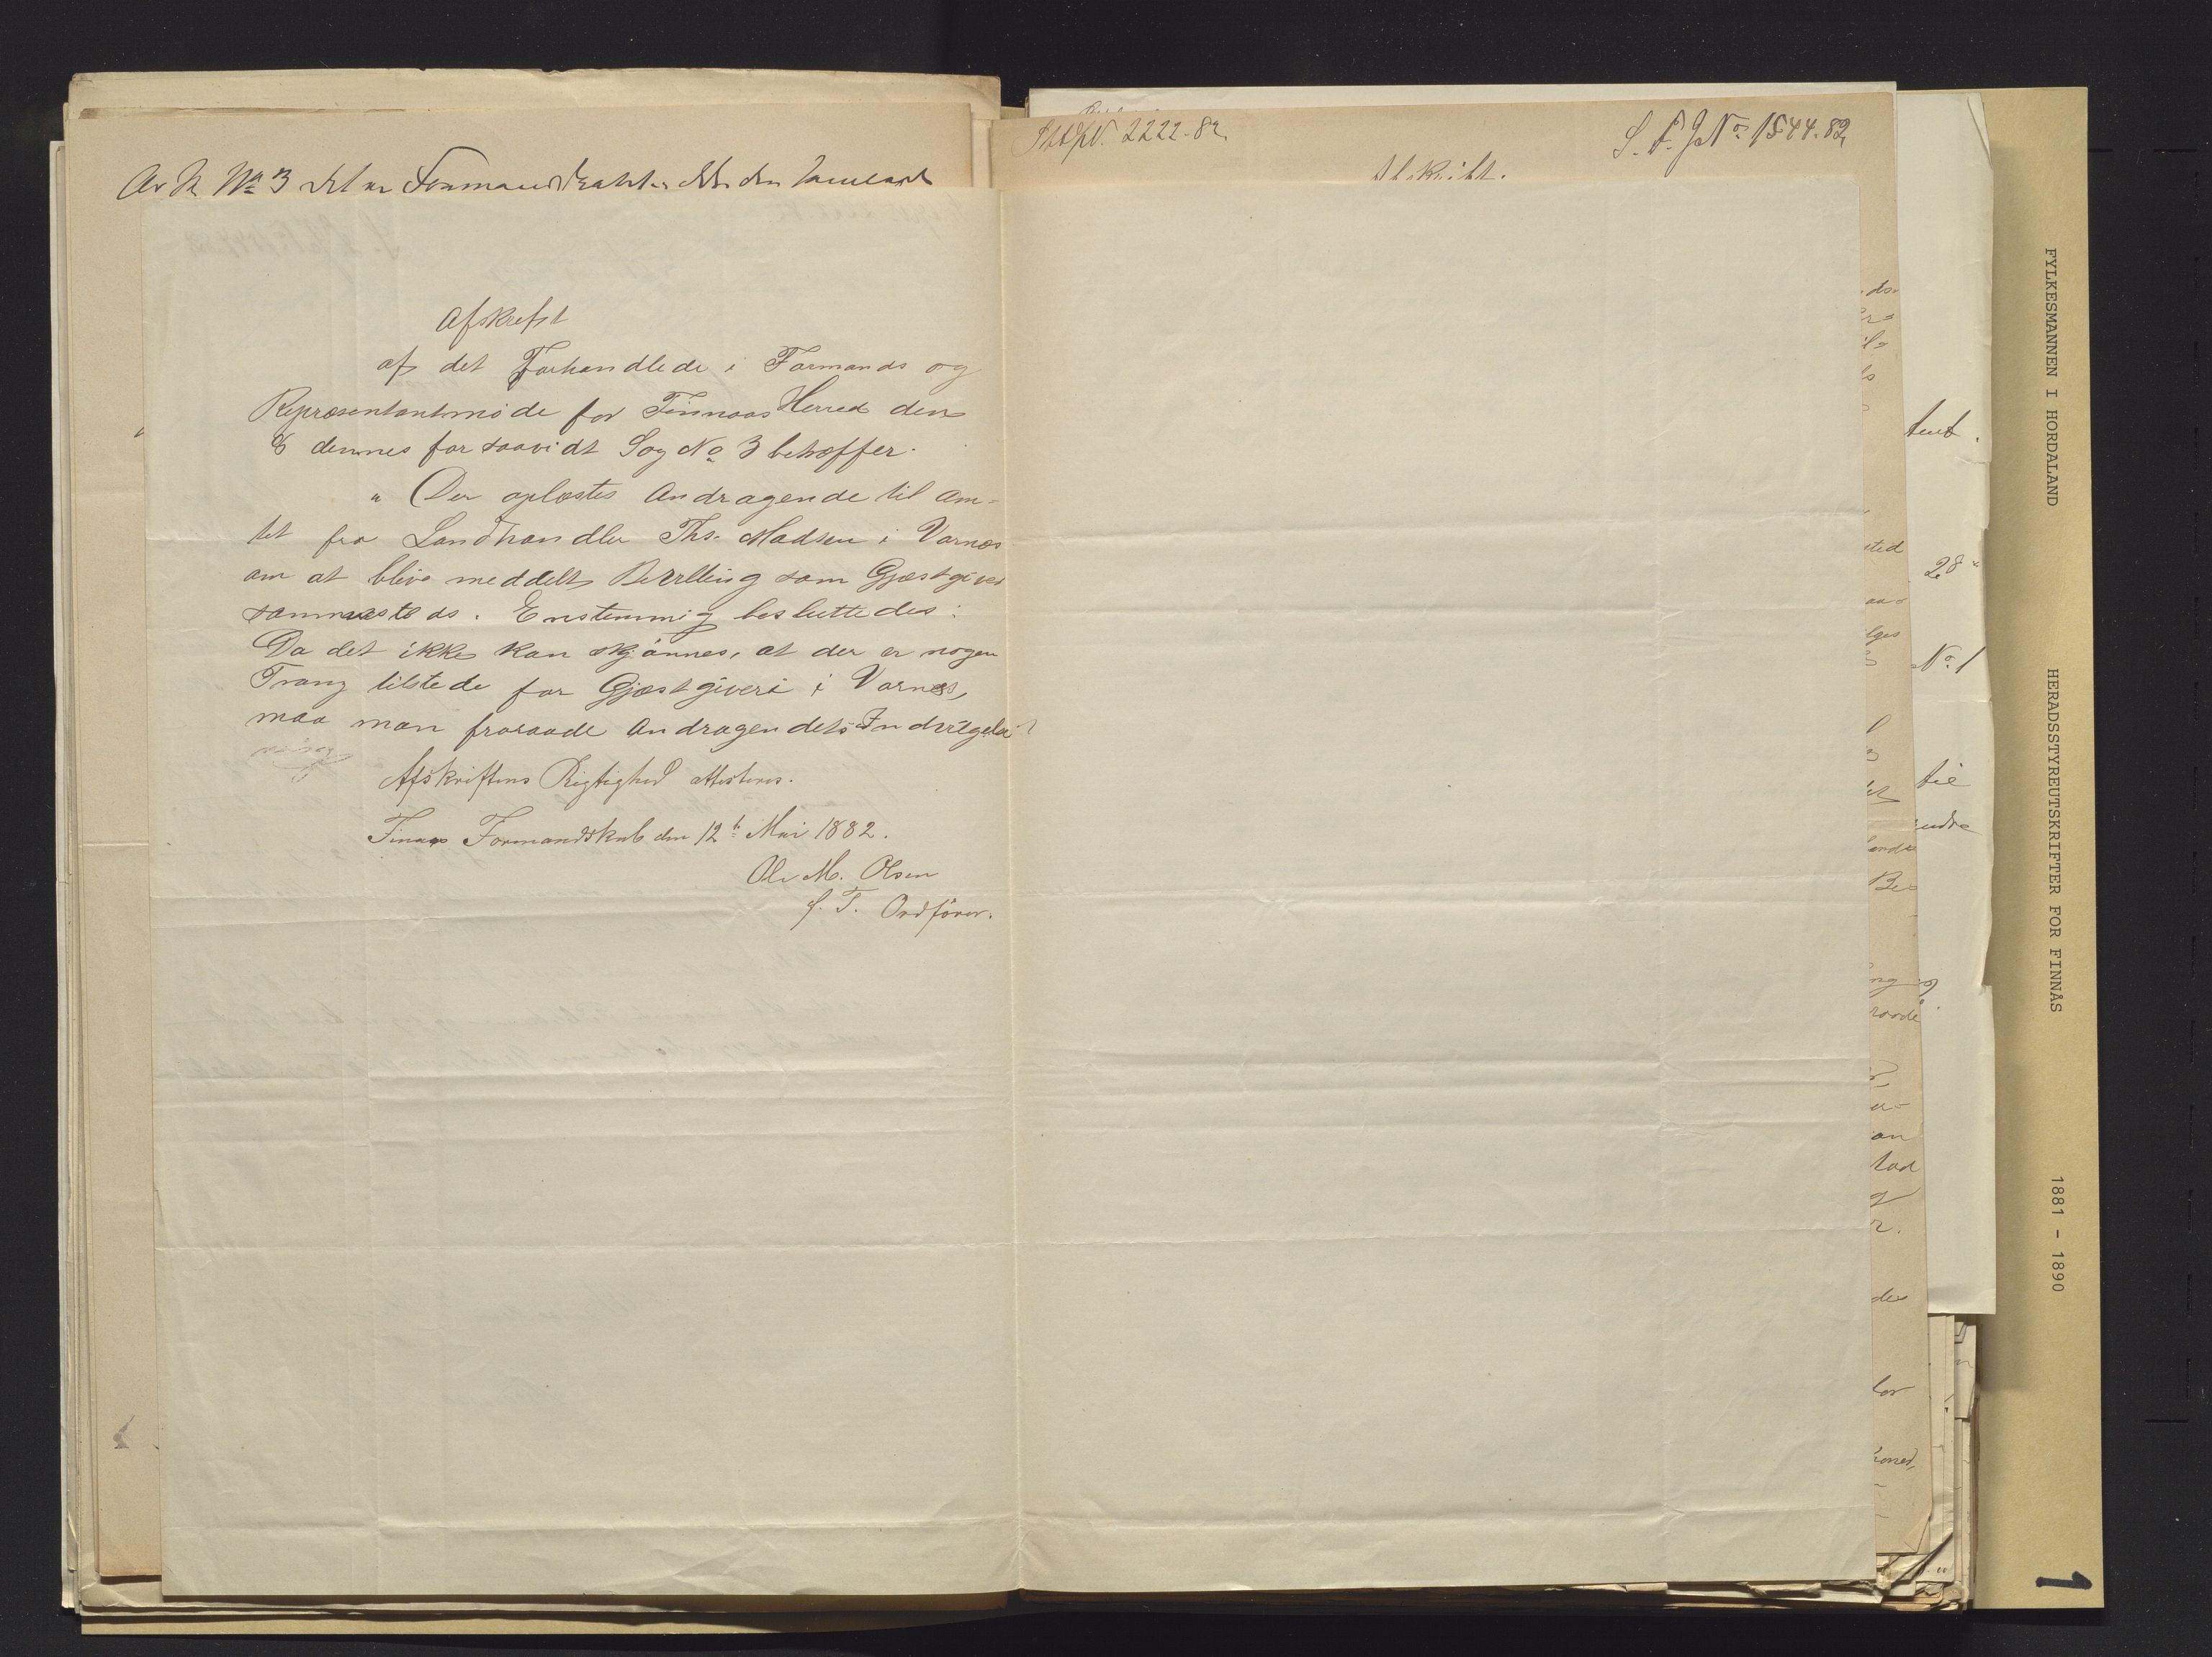 Afskrift
af det Forhandlede i Formands og
Repræsentantmøde for Finnaas Herred den
8 dennes for saavidt Sag No 3 betræffer.
" Der oplæstes Andragende til Am-
tet fra Landhandler Ths. Madsen i Varnæs
om at blive meddelt Bevilling som Gjæstgiver
sammesteds. Enstemmig besluttedes:
Da det ikke kan skjønnes, at der er nogen
Trang tilstede for Gjæstgiveri i Varnæs,
maa man fraraade Andragendets Indvilgelse"
Afskriftens Rigtighed attesteres.
Finaas Formandskab den 12te Mai 1882.
Ole M. Olsen
f. T. Ordfører.
2222-82.
S. F. J No 1544-82
Afskrift.
tent.
28
No 1
til
ændre
sted
Be-
raade
an
des
FYLKESMANNEN I HORDALAND
HERADSSTYREUTSKRIFTER FOR FINNÅS
1881 - 1890
1